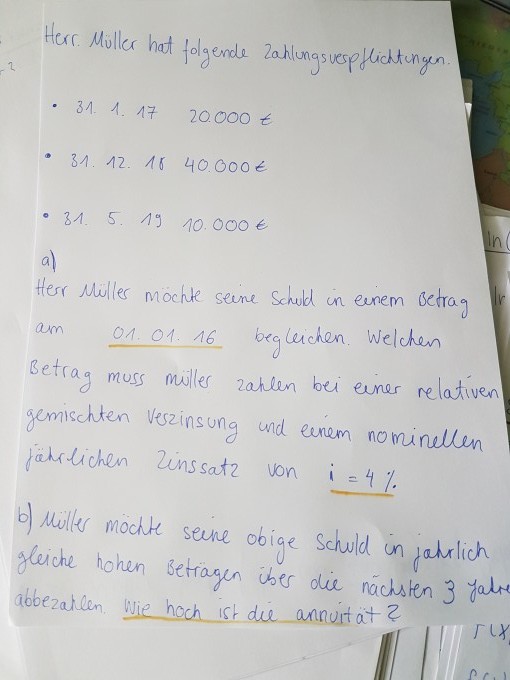 Herr. Müller hat folgende Zahlungsvespflichtungen.
• 31. 1. 17 20.000 €
• 31. 12. 18 40.000 €
• 31. 5. 19 10.000 €
a)
Herr Müller möchte seine Schuld in einem Betrag
am 01. 01. 16 begleichen. Welchen
Betrag muss müller zahlen bei einer relativen
gemischten Veszinsung und einem nominellen
jährlichen Zinssatz von i = 4 %.
b) Müller möchte seine obige Schuld in jahrlich
gleiche hohen Beträgen über die nächsten 3 Jahre
abbezahlen. Wie hoch ist die annuität?
in(